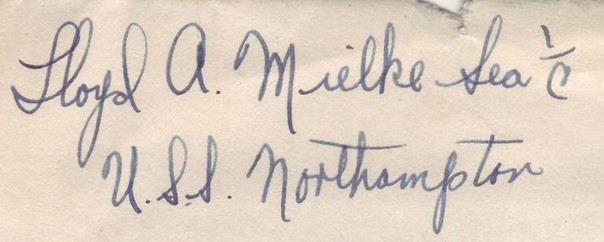 Lloyd A. Mielke Sea 1/c
U.S.S. Northampton